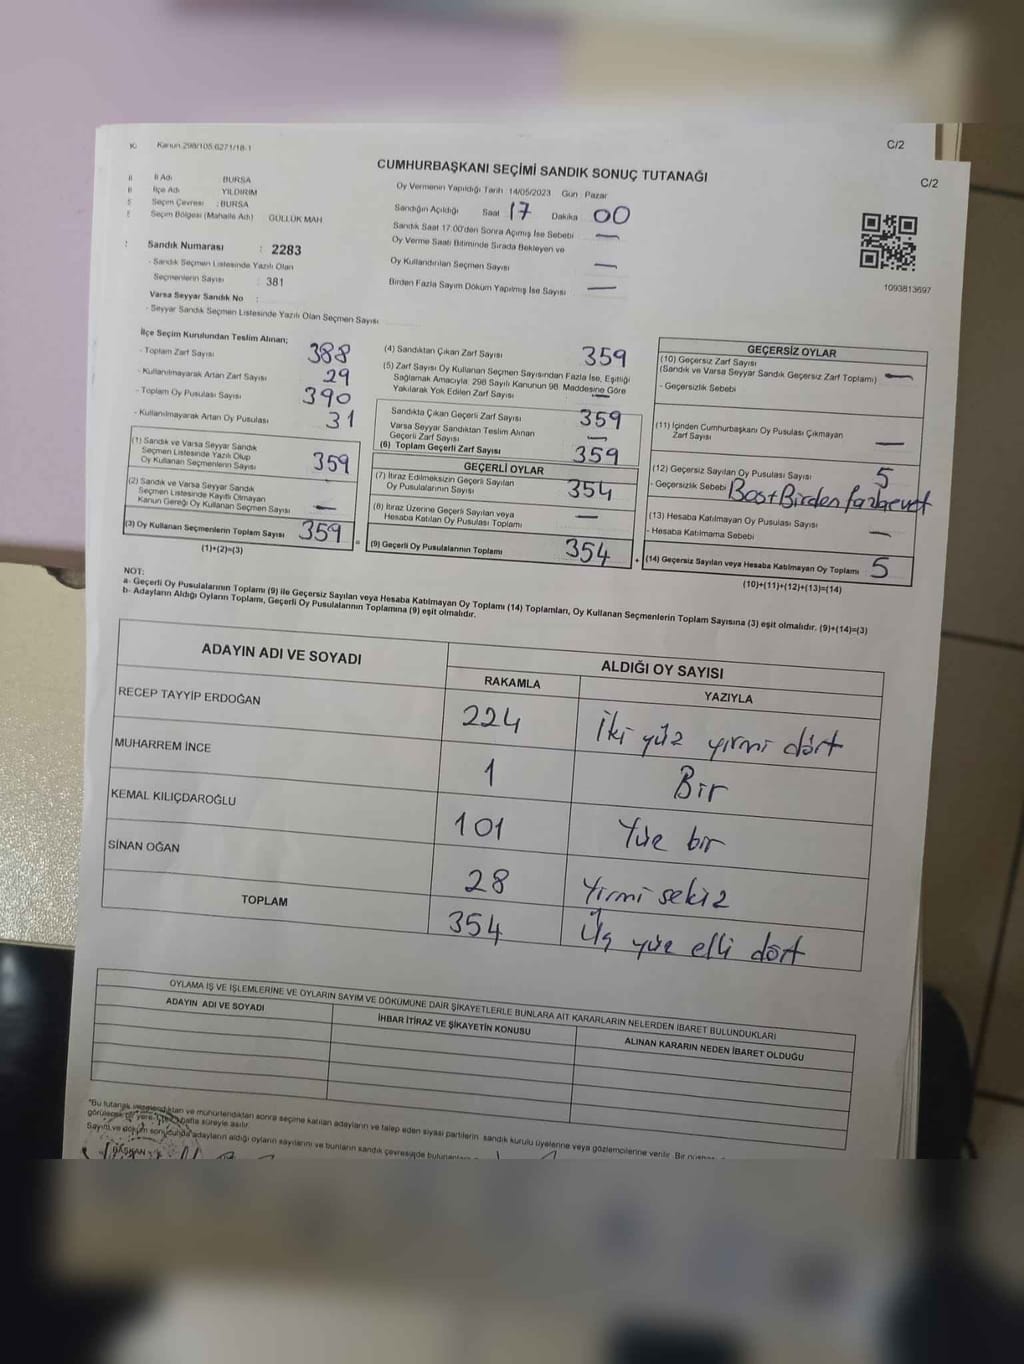 Kanun 298/105,6271/18-1
C/2
CUMHURBAŞKANI SEÇİMİ SANDIK SONUÇ TUTANAĞI
C/2
İl Adı : BURSA
İlçe Adı : YILDIRIM
Seçim Çevresi : BURSA
Seçim Bölgesi (Mahalle Adı) GÜLLÜK MAH
Oy Vermenin Yapıldığı Tarih : 14/05/2023 Gün : Pazar
Sandığın Açıldığı Saat 17 Dakika 00
Sandık Saat 17.00'den Sonra Açımış İse Sebebi —
Oy Verme Saati Bitiminde Sırada Bekleyen ve
Oy Kullandırılan Seçmen Sayısı —
Birden Fazla Sayım Döküm Yapılmış İse Sayısı —
1093813697
Sandık Numarası : 2283
- Sandık Seçmen Listesinde Yazılı Olan
Seçmenlerin Sayısı : 381
Varsa Seyyar Sandık No :
- Seyyar Sandık Seçmen Listesinde Yazılı Olan Seçmen Sayısı
İlçe Seçim Kurulundan Teslim Alınan;
- Toplam Zarf Sayısı 388
- Kullanılmayarak Artan Zarf Sayısı 29
- Toplam Oy Pusulası Sayısı 390
- Kullanılmayarak Artan Oy Pusulası 31
(1) Sandık ve Varsa Seyyar Sandık
Seçmen Listesinde Yazılı Olup
Oy Kullanan Seçmenlerin Sayısı 359
(2) Sandık ve Varsa Seyyar Sandık
Seçmen Listesinde Kayıtlı Olmayan
Kanun Gereği Oy Kullanan Seçmen Sayısı —
(3) Oy Kullanan Seçmenlerin Toplam Sayısı 359
(1)+(2)=(3)
(4) Sandıktan Çıkan Zarf Sayısı 359
(5) Zarf Sayısı Oy Kullanan Seçmen Sayısından Fazla İse, Eşitliği
Sağlamak Amacıyla; 298 Sayılı Kanunun 98. Maddesine Göre
Yakılarak Yok Edilen Zarf Sayısı —
Sandıkta Çıkan Geçerli Zarf Sayısı 359
Varsa Seyyar Sandıktan Teslim Alınan
Geçerli Zarf Sayısı —
(6) Toplam Geçerli Zarf Sayısı 359
GEÇERLİ OYLAR
(7) İtiraz Edilmeksizin Geçerli Sayılan
Oy Pusulalarının Sayısı 354
(8) İtiraz Üzerine Geçerli Sayılan veya
Hesaba Katılan Oy Pusulası Toplamı —
= (9) Geçerli Oy Pusulalarının Toplamı 354
GEÇERSİZ OYLAR
(10) Geçersiz Zarf Sayısı
(Sandık ve Varsa Seyyar Sandık Geçersiz Zarf Toplamı) —
- Geçersizlik Sebebi
(11) İçinden Cumhurbaşkanı Oy Pusulası Çıkmayan
Zarf Sayısı —
(12) Geçersiz Sayılan Oy Pusulası Sayısı 5
- Geçersizlik Sebebi Boş+Birden fazla evet
(13) Hesaba Katılmayan Oy Pusulası Sayısı —
- Hesaba Katılmama Sebebi
+ (14) Geçersiz Sayılan veya Hesaba Katılmayan Oy Toplamı 5
(10)+(11)+(12)+(13)=(14)
NOT:
a- Geçerli Oy Pusulalarının Toplamı (9) ile Geçersiz Sayılan veya Hesaba Katılmayan Oy Toplamı (14) Toplamları, Oy Kullanan Seçmenlerin Toplam Sayısına (3) eşit olmalıdır. (9)+(14)=(3)
b- Adayların Aldığı Oyların Toplamı, Geçerli Oy Pusulalarının Toplamına (9) eşit olmalıdır.
ADAYIN ADI VE SOYADI
ALDIĞI OY SAYISI
RAKAMLA YAZIYLA
RECEP TAYYİP ERDOĞAN 224 İki yüz yirmi dört
MUHARREM İNCE 1 Bir
KEMAL KILIÇDAROĞLU 101 Yüz bir
SİNAN OĞAN 28 Yirmi sekiz
TOPLAM 354 Üç yüz elli dört
OYLAMA İŞ VE İŞLEMLERİNE VE OYLARIN SAYIM VE DÖKÜMÜNE DAİR ŞİKAYETLERLE BUNLARA AİT KARARLARIN NELERDEN İBARET BULUNDUKLARI
ADAYIN ADI VE SOYADI İHBAR İTİRAZ VE ŞİKAYETİN KONUSU ALINAN KARARIN NEDEN İBARET OLDUĞU
*Bu tutanak ve mühürlendikten sonra seçime katılan adayların ve talep eden siyasi partilerin sandık kurulu üyelerine veya gözlemcilerine verilir. Bir
görülecek bir yere hafta süreyle asılır.
Sayım ve döküm sonucunda adayların aldığı oyların sayılarını ve bunların sandık çevresinde
BAŞKAN